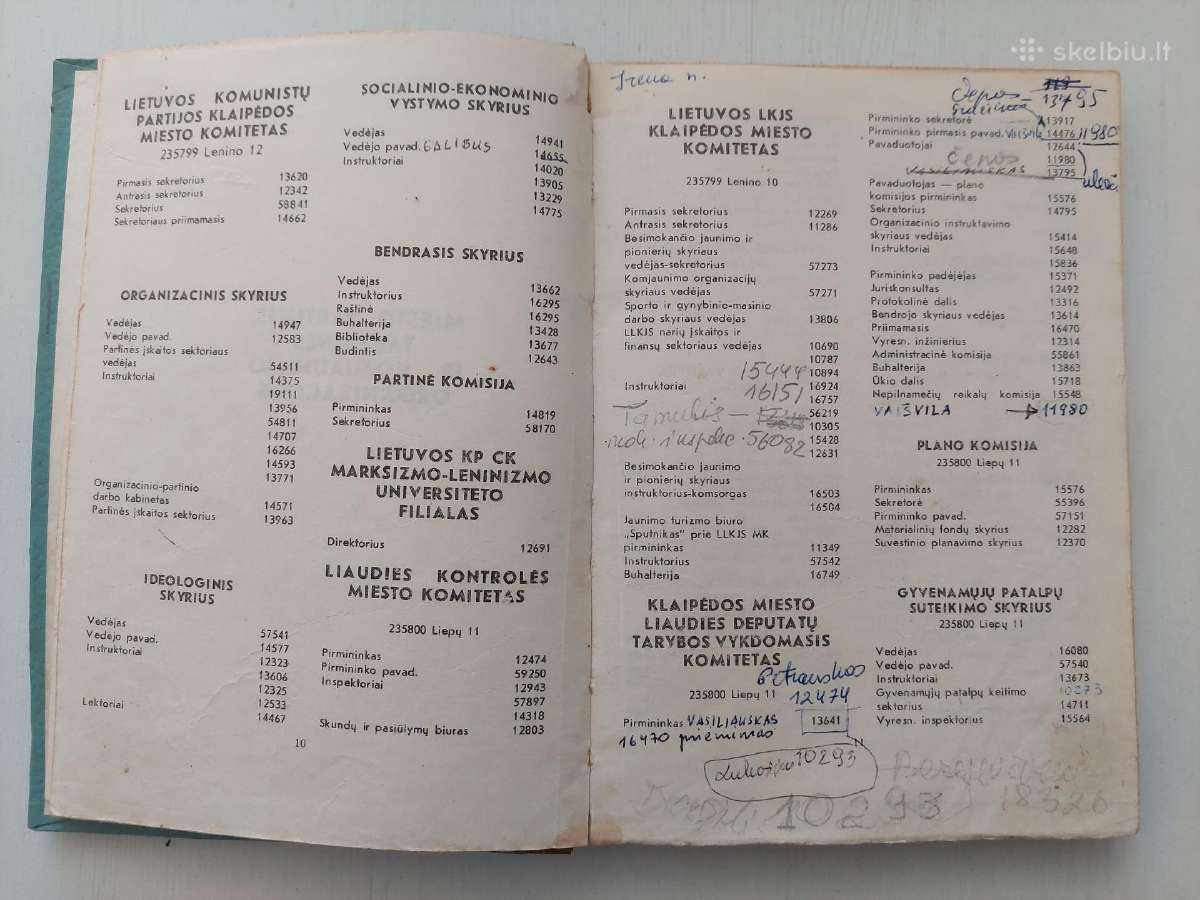 LIETUVOS KOMUNISTŲ
PARTIJOS KLAIPĖDOS
MIESTO KOMITETAS
235799 Lenino 12
Pirmasis sekretorius 13620
Antrasis sekretorius 12342
Sekretorius 58841
Sekretoriaus priimamasis 14662
ORGANIZACINIS SKYRIUS
Vedėjas 14947
Vedėjo pavad. 12583
Partinės įskaitos sektoriaus
vedėjas 54511
Instruktoriai 14375
19111
13956
54811
14707
16266
14593
13771
Organizacinio-partinio
darbo kabinetas 14571
Partinės įskaitos sektorius 13963
IDEOLOGINIS
SKYRIUS
Vedėjas 57541
Vedėjo pavad. 14577
Instruktoriai 12323
13606
12325
Lektoriai 12533
14467
SOCIALINIO-EKONOMINIO
VYSTYMO SKYRIUS
Vedėjas 14941
Vedėjo pavad. GALIBUS 14655
Instruktoriai 14020
13905
13229
14775
BENDRASIS SKYRIUS
Vedėjas 13662
Instruktorius 16295
Raštinė 16295
Buhalterija 13428
Biblioteka 13677
Budintis 12643
PARTINĖ KOMISIJA
Pirmininkas 14819
Sekretorius 58170
LIETUVOS KP CK
MARKSIZMO-LENINIZMO
UNIVERSITETO
FILIALAS
Direktorius 12691
LIAUDIES KONTROLĖS
MIESTO KOMITETAS
235800 Liepų 11
Pirmininkas 12474
Pirmininko pavad. 59250
Inspektoriai 12943
57897
14318
Skundų ir pasiūlymų biuras 12803
10
Irena n.
LIETUVOS LKJS
KLAIPĖDOS MIESTO
KOMITETAS
235799 Lenino 10
Pirmasis sekretorius 12269
Antrasis sekretorius 11286
Besimokančio jaunimo ir
pionierių skyriaus
vedėjas-sekretorius 57273
Komjaunimo organizacijų
skyriaus vedėjas 57271
Sporto ir gynybinio-masinio
darbo skyriaus vedėjas 13806
LLKJS narių įskaitos ir
finansų sektoriaus vedėjas 10690
10787
15444 10894
Instruktoriai 16151 16924
16757
56219
10305
56082 15428
12631
Besimokančio jaunimo
ir pionierių skyriaus
instruktorius-komsorgas 16503
16504
Jaunimo turizmo biuro
„Sputnikas" prie LLKJS MK
pirmininkas 11349
Instruktorius 57542
Buhalterija 16749
KLAIPĖDOS MIESTO
LIAUDIES DEPUTATŲ
TARYBOS VYKDOMASIS
KOMITETAS
Petrauskas
235800 Liepų 11 12474
Pirmininkas VASILIAUSKAS 13641
16470 priėmimas
10293
10293 18526
Čepas
13795
Pirmininko sekretorė 13917
Pirmininko pirmasis pavad. VAIŠVILA 14476 11980
Pavaduotojai 12644
Čepas 11980
VASILIAUSKAS 13795
Pavaduotojas — plano
komisijos pirmininkas 15576
Sekretorius 14795
Organizacinio instruktavimo
skyriaus vedėjas 15414
Instruktoriai 15648
15836
Pirmininko padėjėjas 15371
Juriskonsultas 12492
Protokolinė dalis 13316
Bendrojo skyriaus vedėjas 13614
Priimamasis 16470
Vyresn. inžinierius 12314
Administracinė komisija 55861
Buhalterija 13863
Ūkio dalis 15718
Nepilnamečių reikalų komisija 15548
VAIŠVILA → 11980
PLANO KOMISIJA
235800 Liepų 11
Pirmininkas 15576
Sekretorė 55396
Pirmininko pavad. 57151
Materialinių fondų skyrius 12282
Suvestinio planavimo skyrius 12370
GYVENAMŲJŲ PATALPŲ
SUTEIKIMO SKYRIUS
235800 Liepų 11
Vedėjas 16080
Vedėjo pavad. 57540
Instruktoriai 13673
Gyvenamųjų patalpų keitimo 10273
sektorius 14711
Vyresn. inspektorius 15564
skelbiu.lt